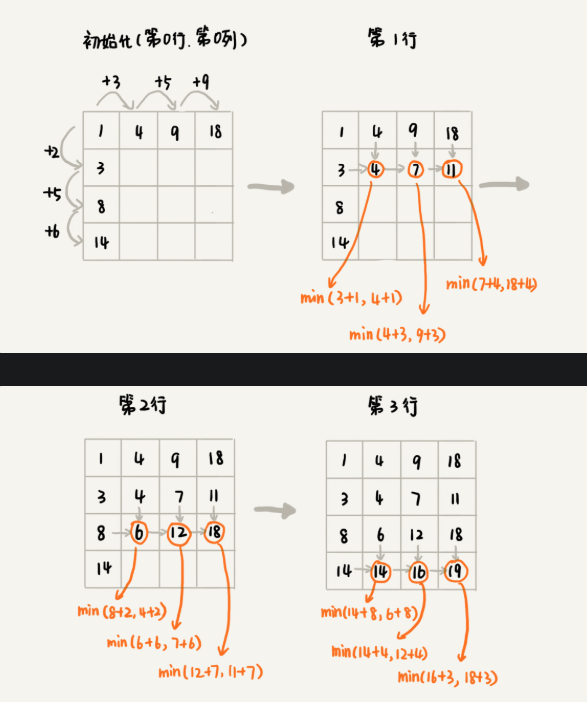 初始化(第0行.第0列)
+3 +5 +9
1 4 9 18
+2
3
+5
8
+6
14
第1行
1 4 9 18
3 4 7 11
8
14
min(3+1, 4+1)
min(7+4,18+4)
min(4+3, 9+3)
第2行
1 4 9 18
3 4 7 11
8 6 12 18
14
min(8+2, 4+2)
min(6+6, 7+6)
min(12+7, 11+7)
第3行
1 4 9 18
3 4 7 11
8 6 12 18
14 14 16 19
min(14+8, 6+8)
min(14+4, 12+4)
min(16+3, 18+3)